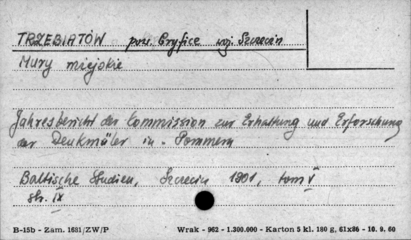 TRZEBIATÓW pow. Gryfice woj. Szczecin
Mury miejskie
Jahresbericht der Commission zur Erhaltung und Erforschung
der Denkmäler in. Pommern
Baltische Studien, Szczecin 1901, tom V
str. IX
B-15b - Zam. 1681/ZW/P Wrak - 962 - 1.300.000 - Karton 5 kl. 180 g, 61x86 - 10. 9. 60